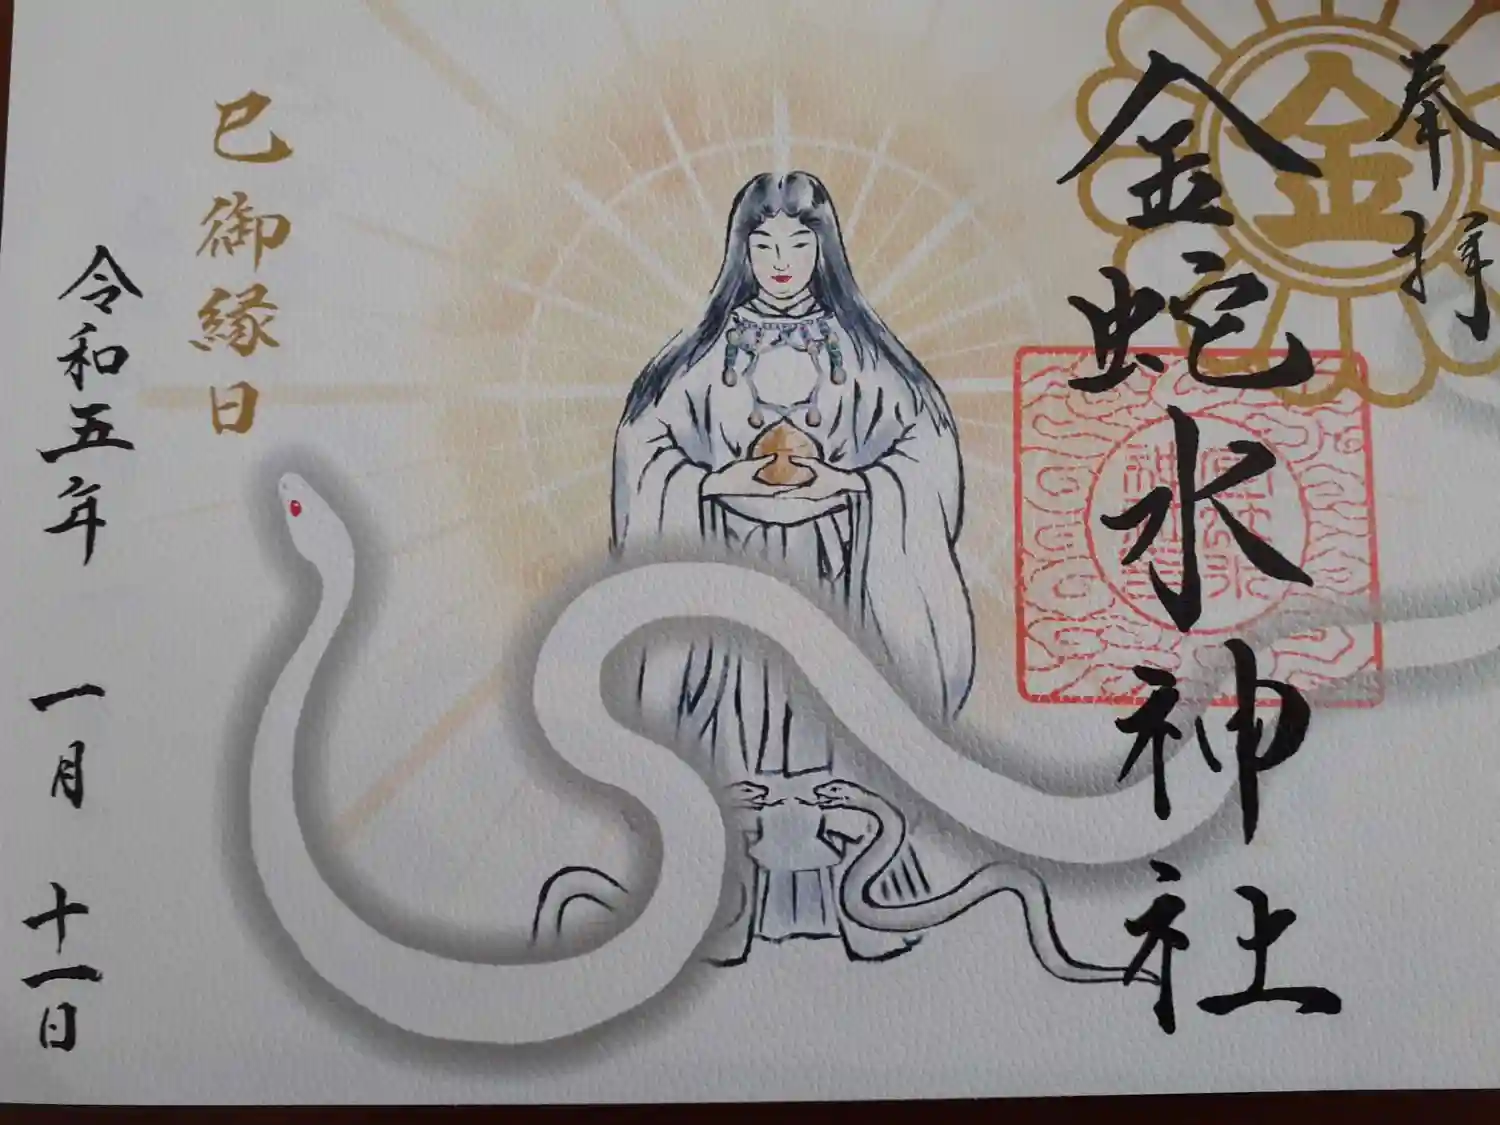 奉拝
金
金蛇水神社
巳御縁日
令和五年一月十一日